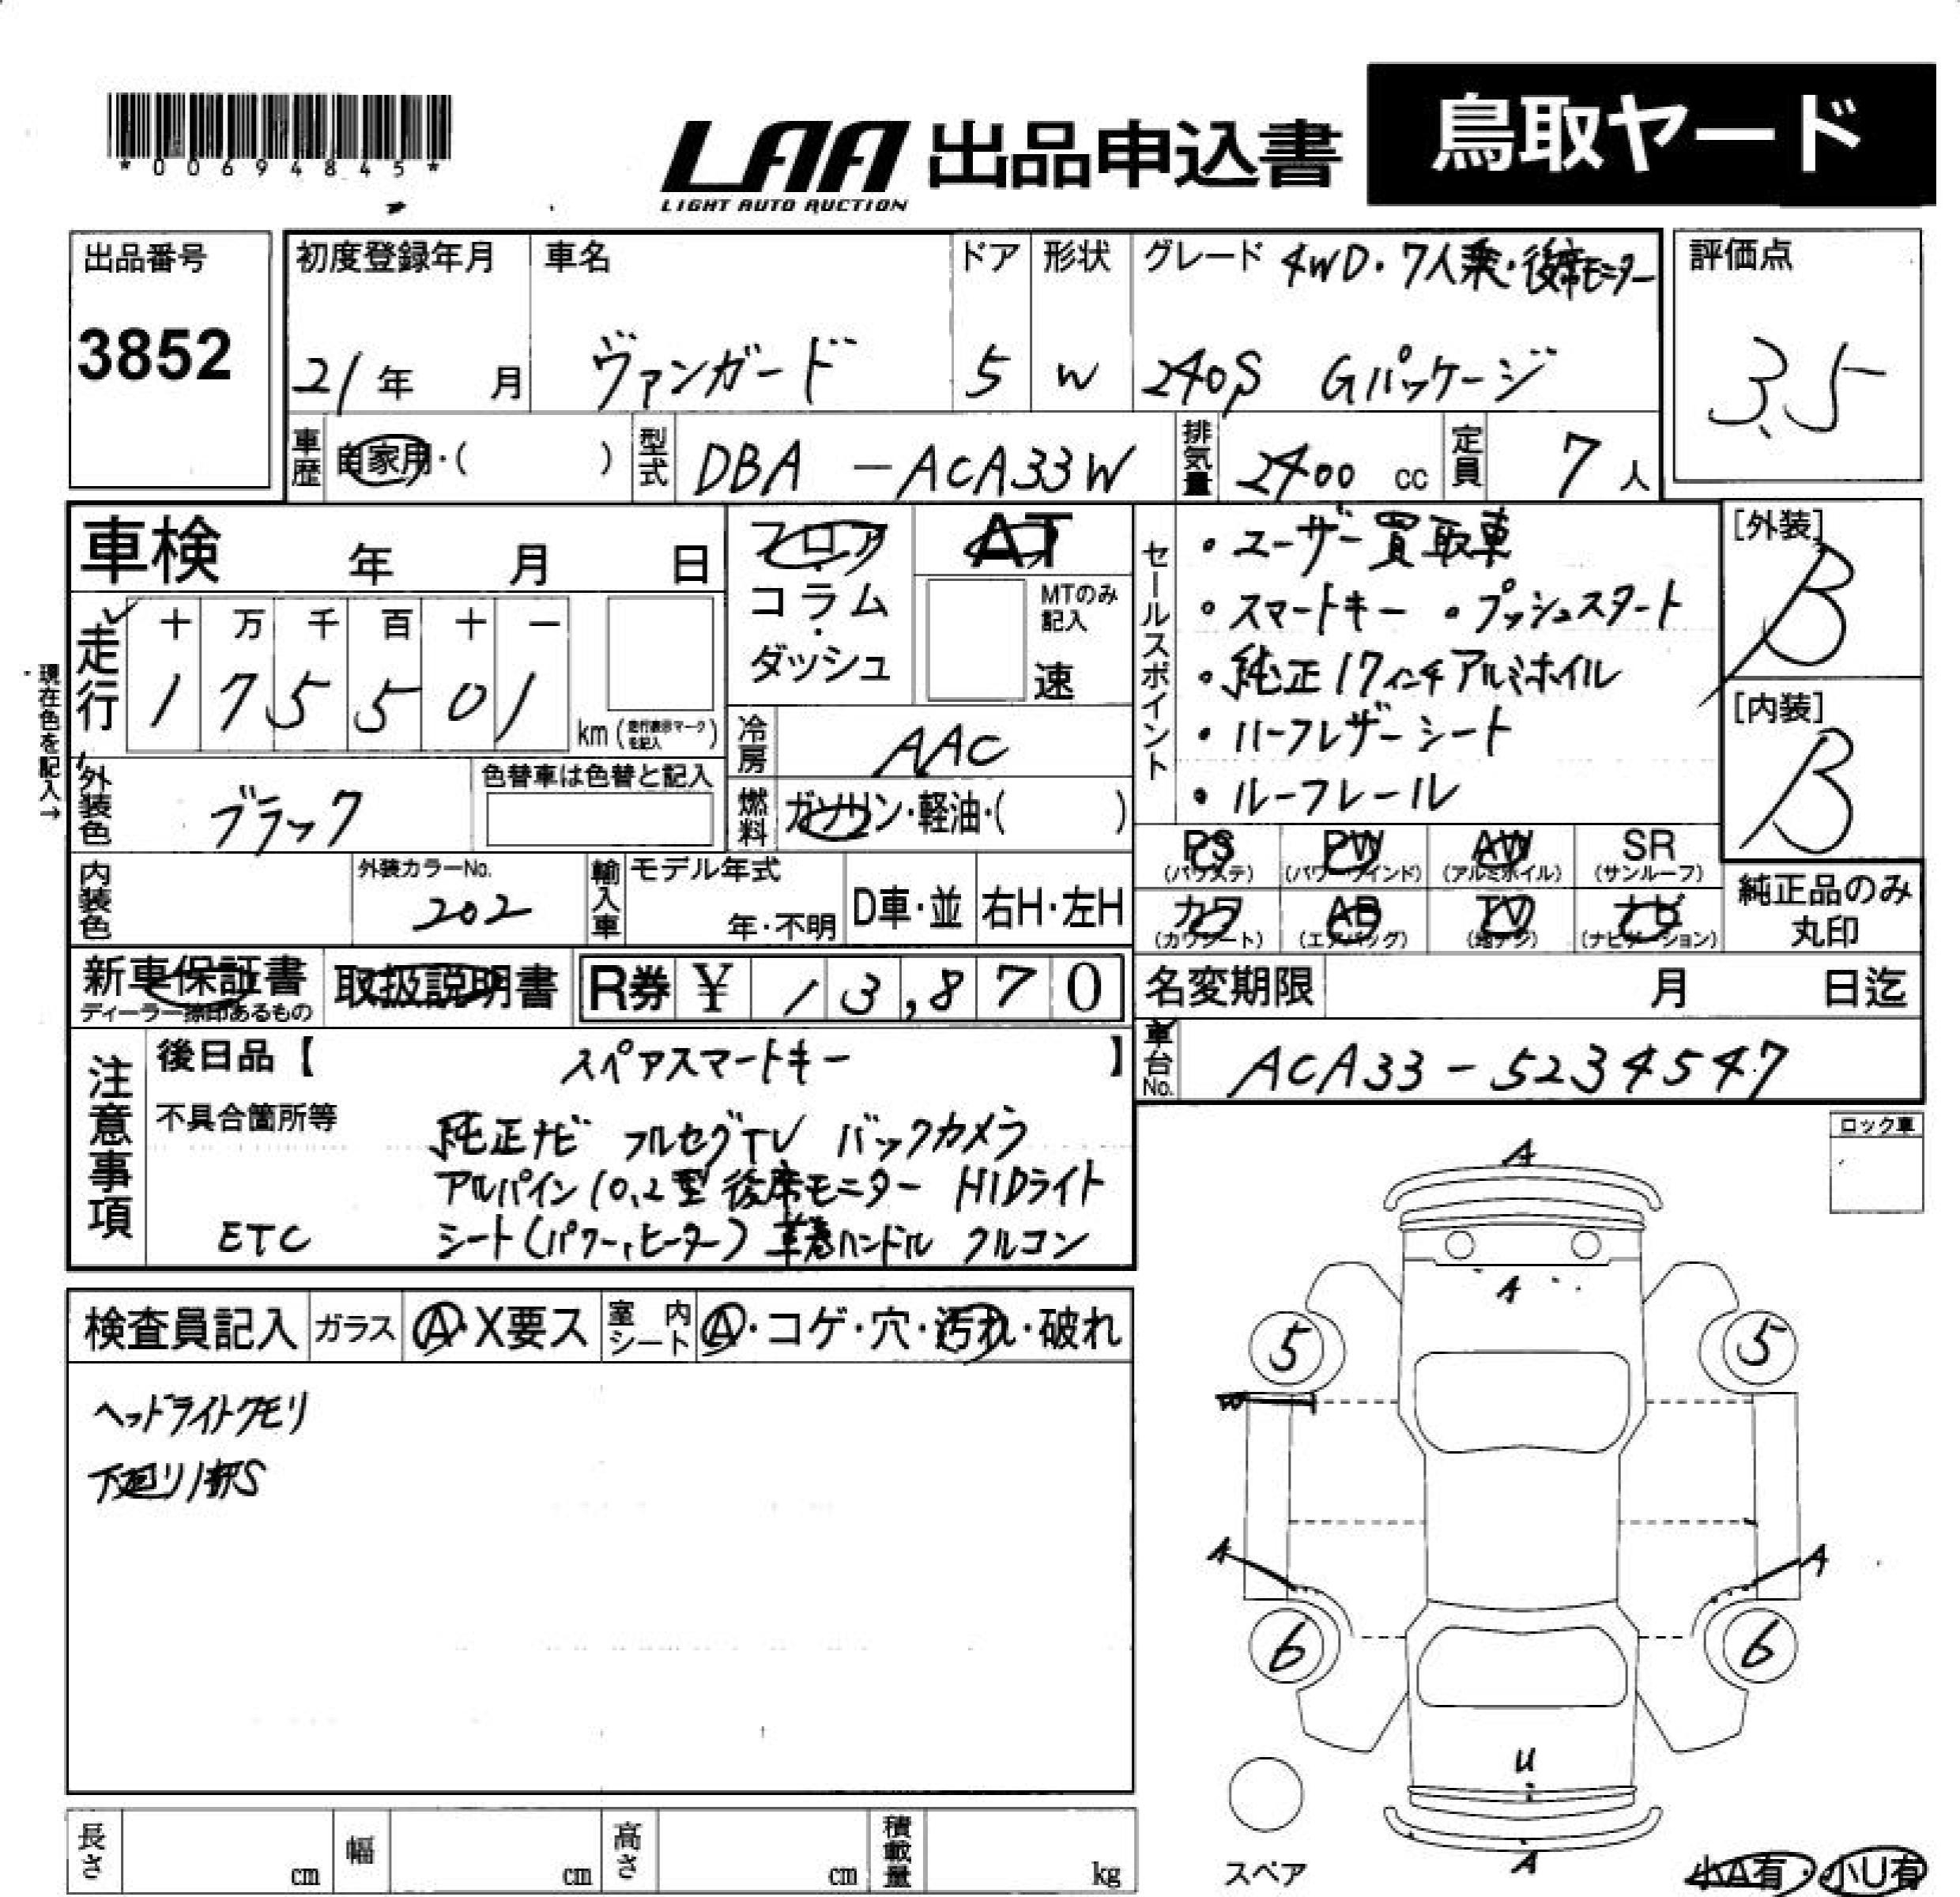 *00694845*
LAA 出品申込書 鳥取ヤード
LIGHT AUTO AUCTION
出品番号
3852
初度登録年月
21年 月
車名
ヴァンガード
ドア
5
形状
W
グレード 4WD・7人乗・後席モニター
240S Gパッケージ
評価点
3.5
車歴 自家用・( )
型式 DBA - ACA33W
排気量 2400 cc
定員 7人
車検 年 月 日
フロア
コラム
・
ダッシュ
AT
MTのみ
記入
速
走行
十 万 千 百 十 一
1 7 5 5 0 1
km(走行表示マークを記入)
現在色を記入→
冷房 AAC
燃料 ガソリン・軽油・( )
外装色 ブラック
色替車は色替と記入
内装色
外装カラーNo.
202
輸入車
モデル年式
年・不明
D車・並
右H・左H
セールスポイント
・ユーザー買取車
・スマートキー ・プッシュスタート
・純正17インチアルミホイル
・ハーフレザーシート
・ルーフレール
[外装]
B
[内装]
B
PS
(パワステ)
PW
(パワーウインド)
AW
(アルミホイル)
SR
(サンルーフ)
カワ
(カワシート)
AB
(エアバッグ)
TV
(地デジ)
ナビ
(ナビゲーション)
純正品のみ
丸印
新車保証書
ディーラー捺印あるもの
取扱説明書
R券 ¥ 13,870
名変期限 月 日迄
車台No. ACA33-5234547
注意事項
後日品【 スペアスマートキー 】
不具合箇所等
純正ナビ フルセグTV バックカメラ
アルパイン10.2型後席モニター HIDライト
ETC シート(パワー,ヒーター) 革巻ハンドル クルコン
ロック車
検査員記入
ガラス A・X要ス
室内シート A・コゲ・穴・汚れ・破れ
ヘッドライトクモリ
下廻り1部S
A
A
5 5
A A
6 6
U
A
スペア
小A有・小U有
長さ cm
幅 cm
高さ cm
積載量 kg